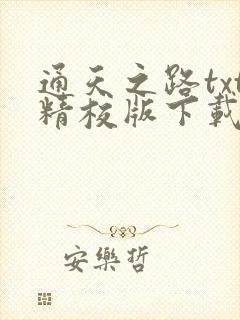 通天之路txt
精校版下載
安樂哲